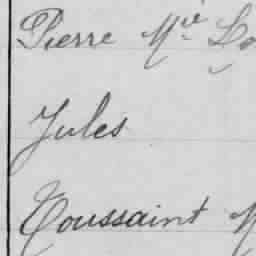 Pierre Mie
Jules
Toussaint